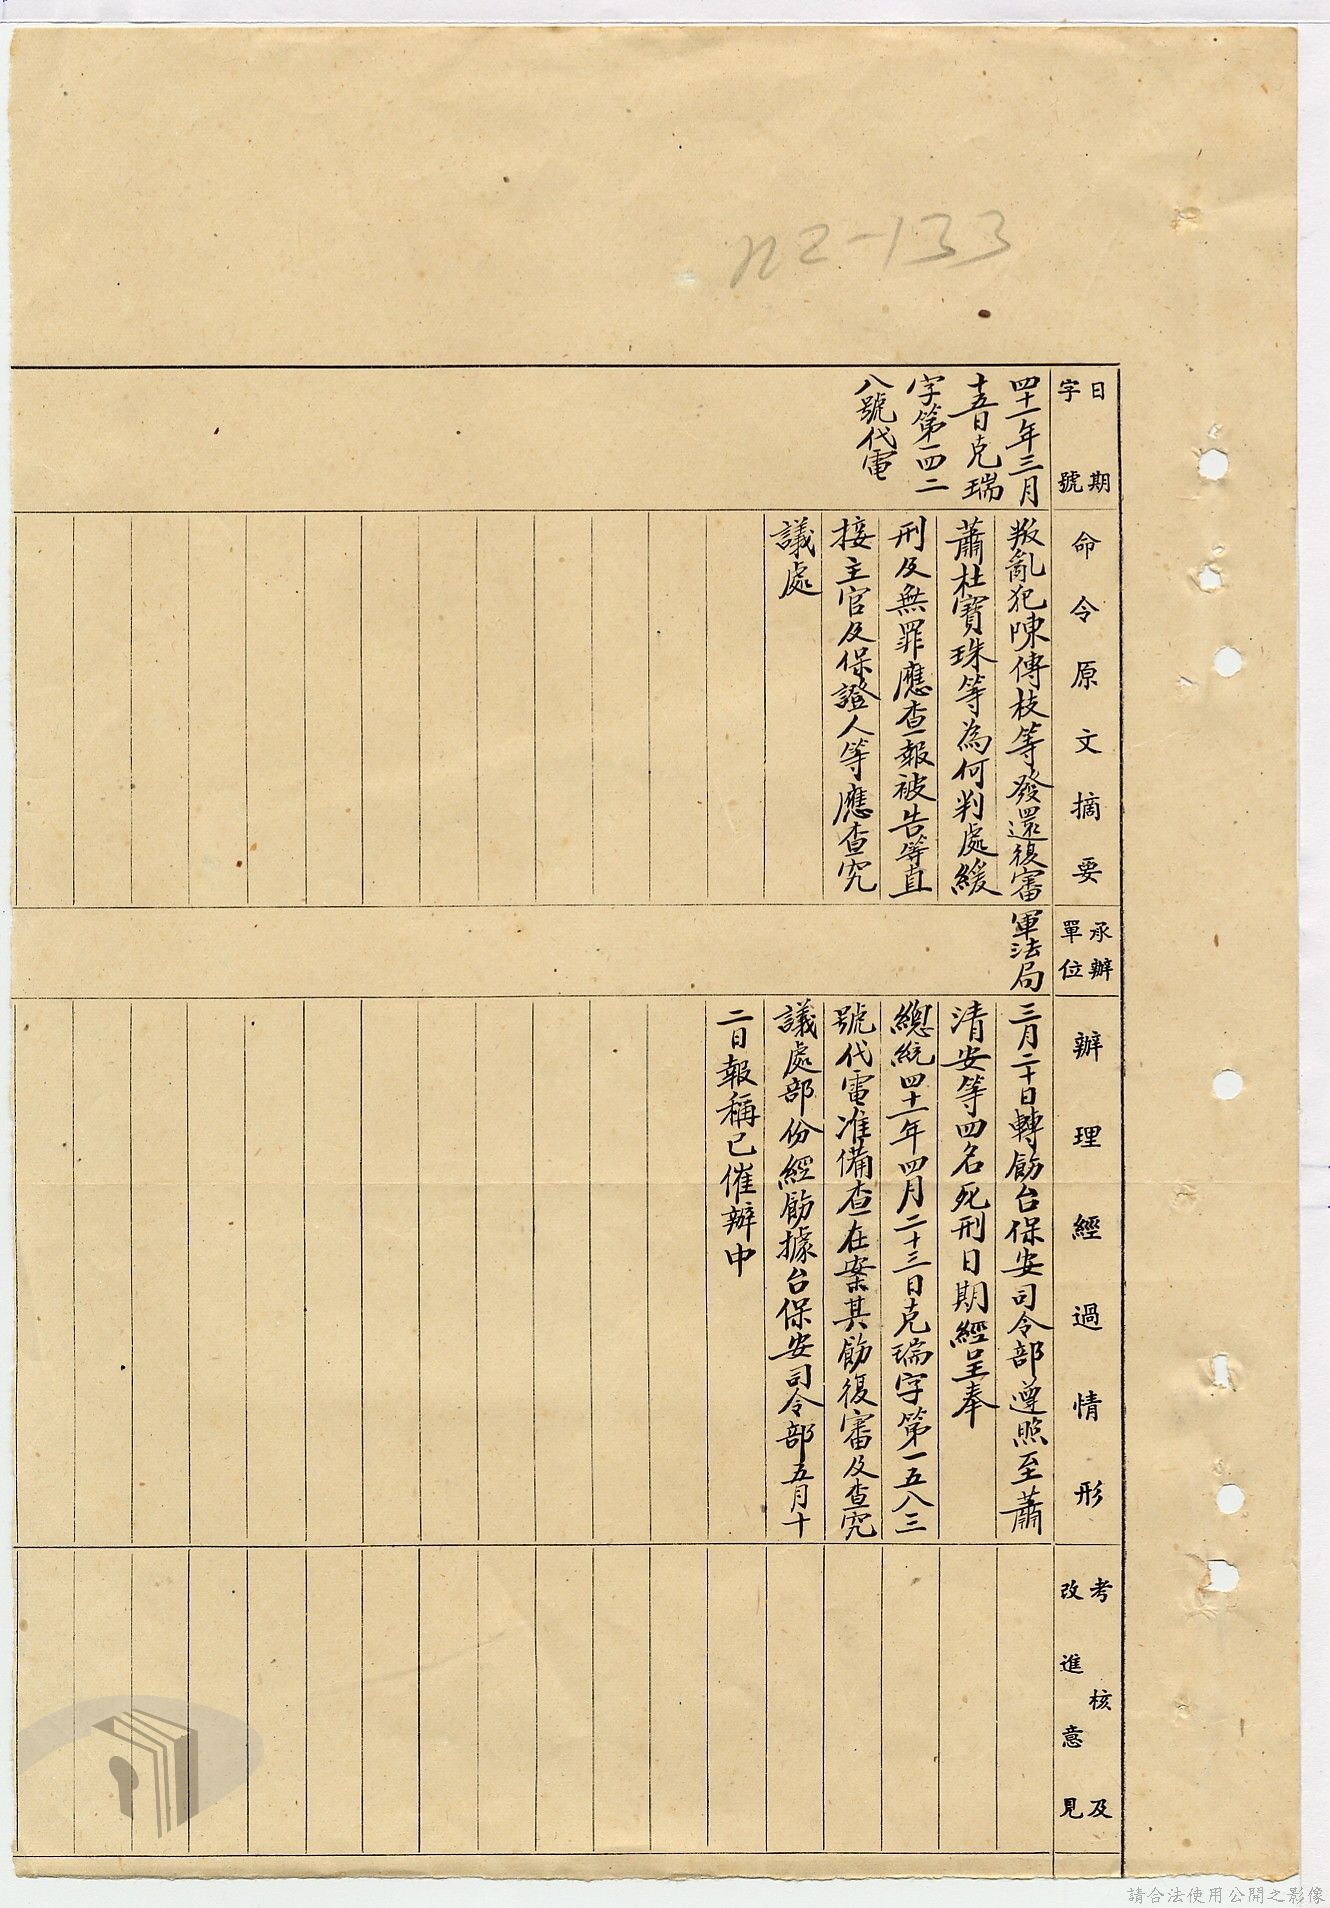 112-133
日期
字號
四十一年三月
十五日克瑞
字第一四二
八號代電
命令原文摘要
叛亂犯陳傳枝等發還復審
蕭杜寶珠等為何判處緩
刑及無罪應查報被告等直
接主官及保證人等應查究
議處
承辦
單位
軍法局
辦理經過情形
三月二十日轉飭台保安司令部遵照至蕭
清安等四名死刑日期經呈奉
總統四十一年四月二十三日克瑞字第一五八三
號代電准備查在案其飭復審及查究
議處部份經飭據台保安司令部五月十
二日報稱已催辦中
考核及
改進意見
請合法使用公開之影像